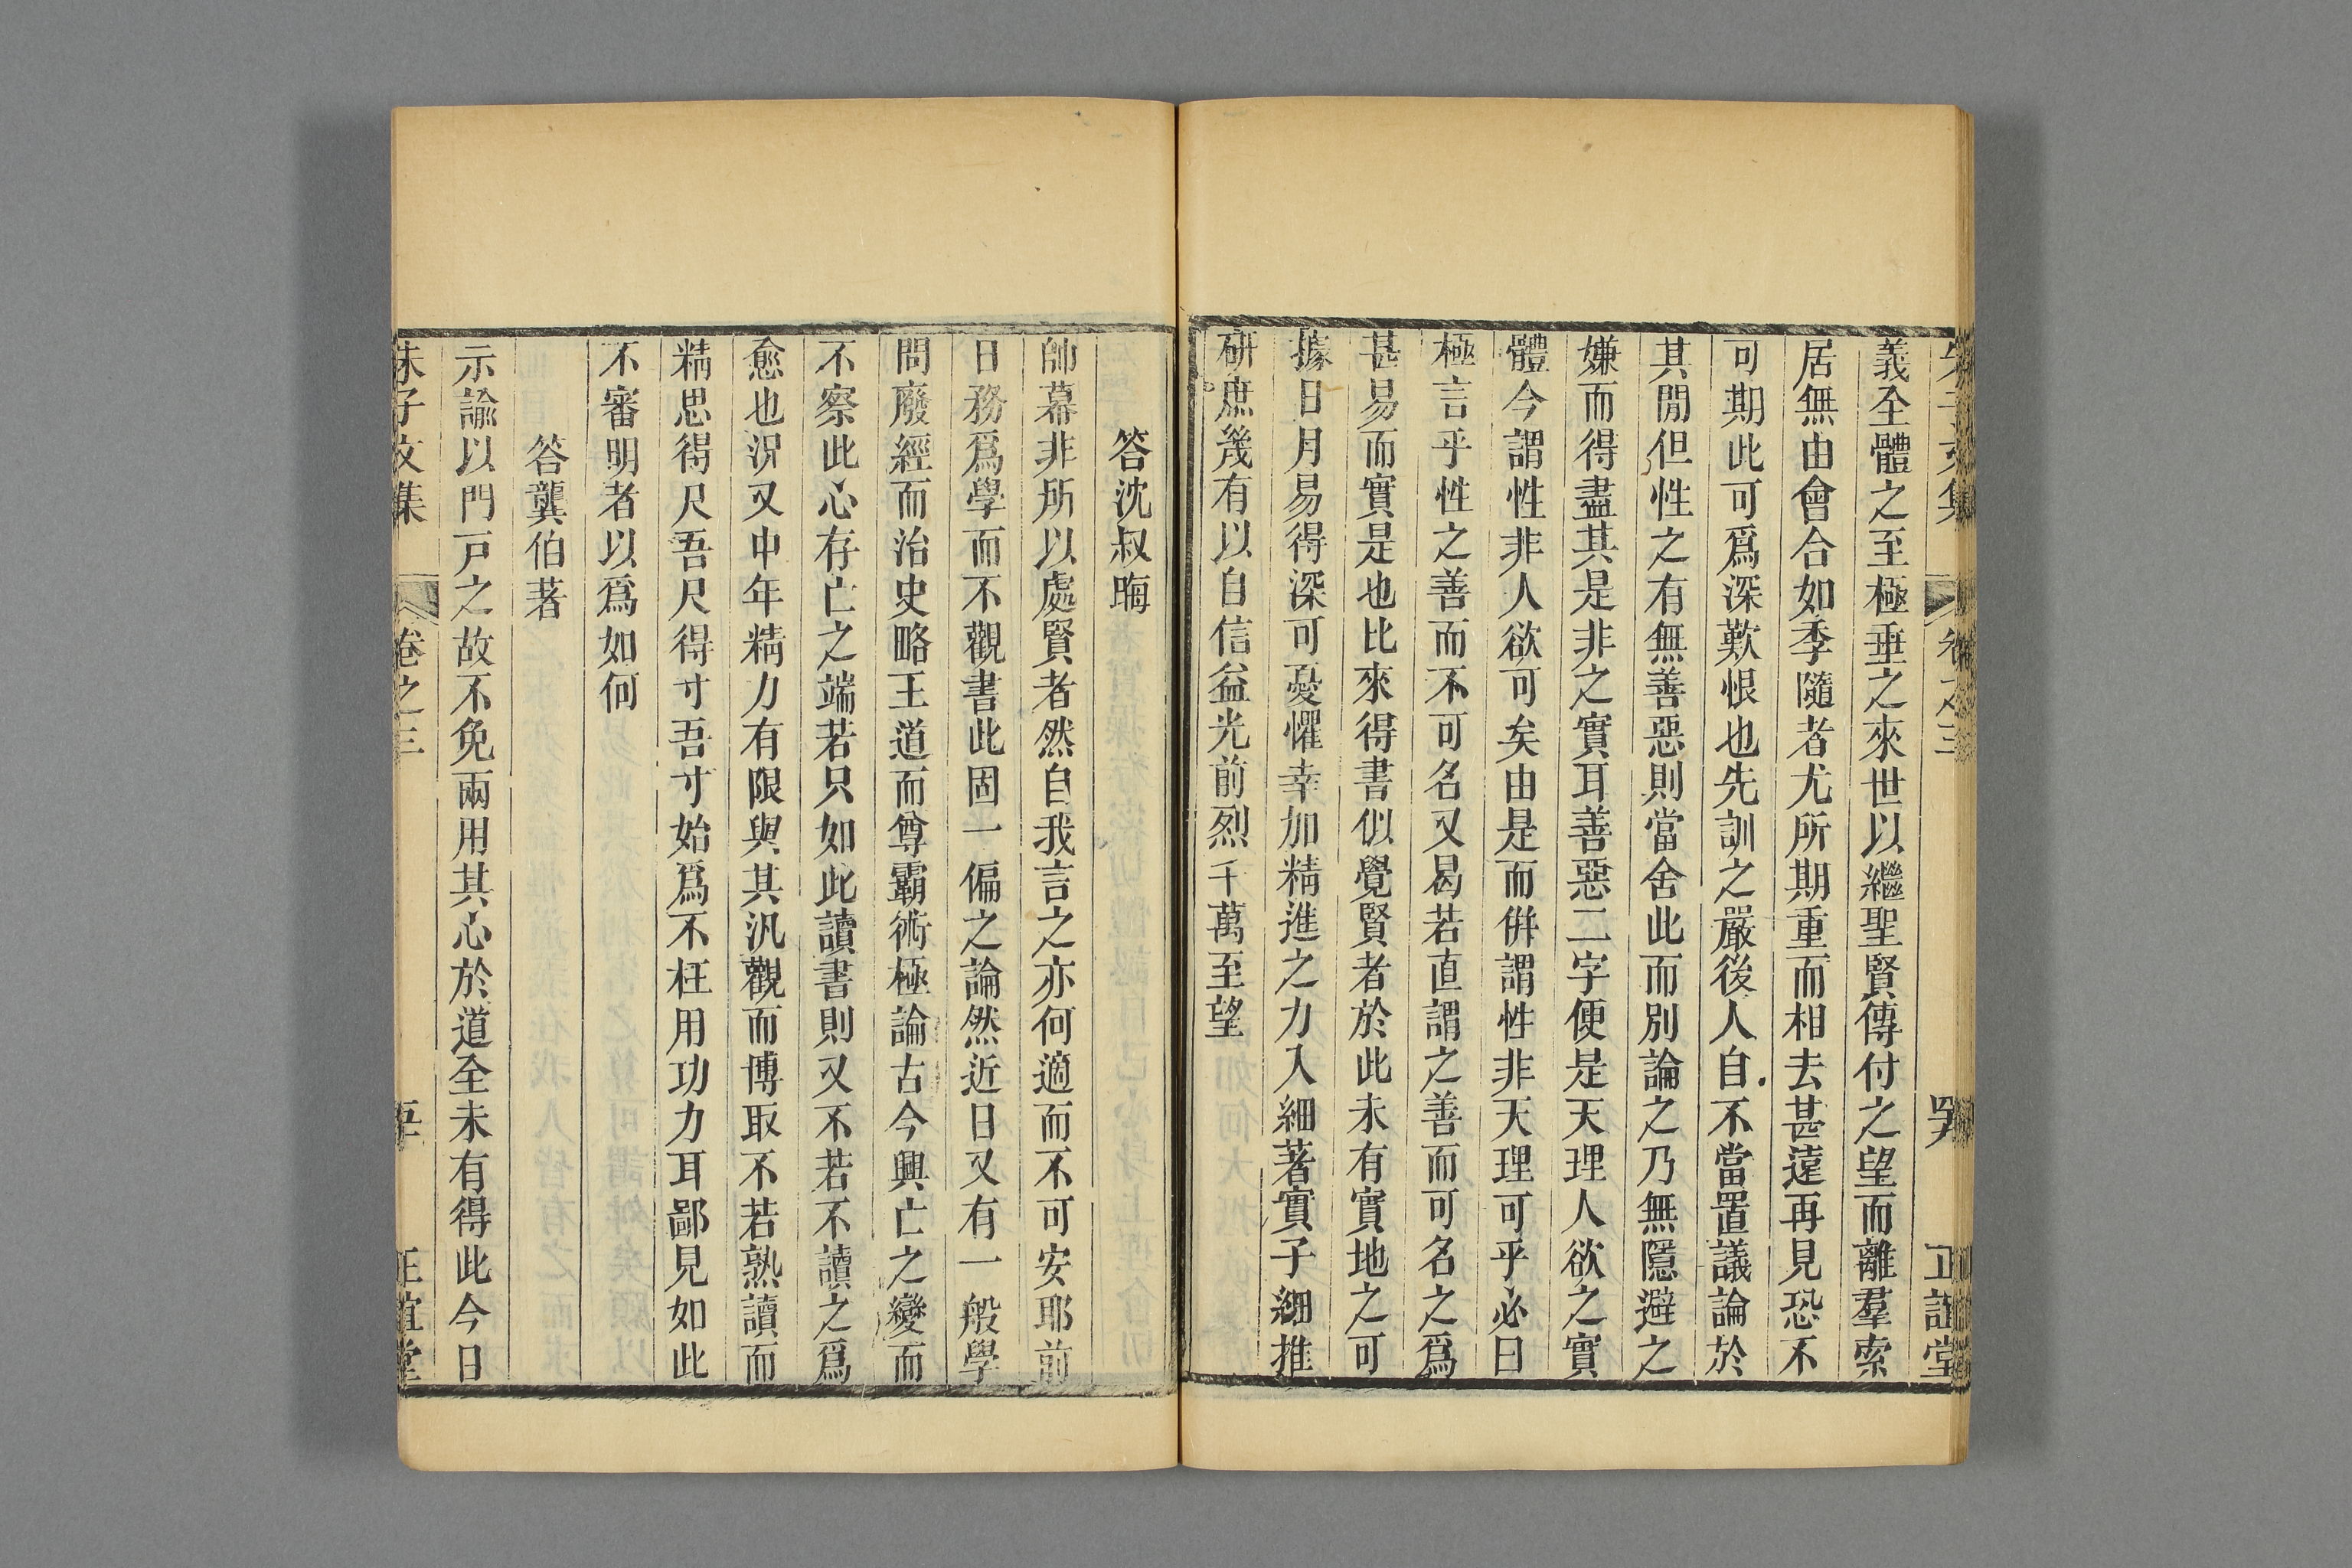 朱子文集 卷之三 正誼堂
義全體之至極垂之來世以繼聖賢傳付之望而離羣索
居無由會合如季隨者尤所期重而相去甚遠再見恐不
可期此可爲深歎恨也先訓之嚴後人自不當置議論於
其閒但性之有無善惡則當舍此而別論之乃無隱避之
嫌而得盡其是非之實耳善惡二字便是天理人欲之實
體今謂性非人欲可矣由是而倂謂性非天理可乎必曰
極言乎性之善而不可名又曷若直謂之善而可名之爲
甚易而實是也比來得書似覺賢者於此未有實地之可
據日月易得深可憂懼幸加精進之力入細著實子細推
研庶幾有以自信益光前烈千萬至望
答沈叔晦
帥幕非所以處賢者然自我言之亦何適而不可安耶前
日務爲學而不觀書此固一偏之論然近日又有一般學
問廢經而治史略王道而尊霸術極論古今興亡之變而
不察此心存亡之端若只如此讀書則又不若不讀之爲
愈也況又中年精力有限與其汎觀而博取不若熟讀而
精思得尺吾尺得寸吾寸始爲不枉用功力耳鄙見如此
不審明者以爲如何
答龔伯著
示諭以門戸之故不免兩用其心於道全未有得此今日
朱子文集 卷之三 正誼堂